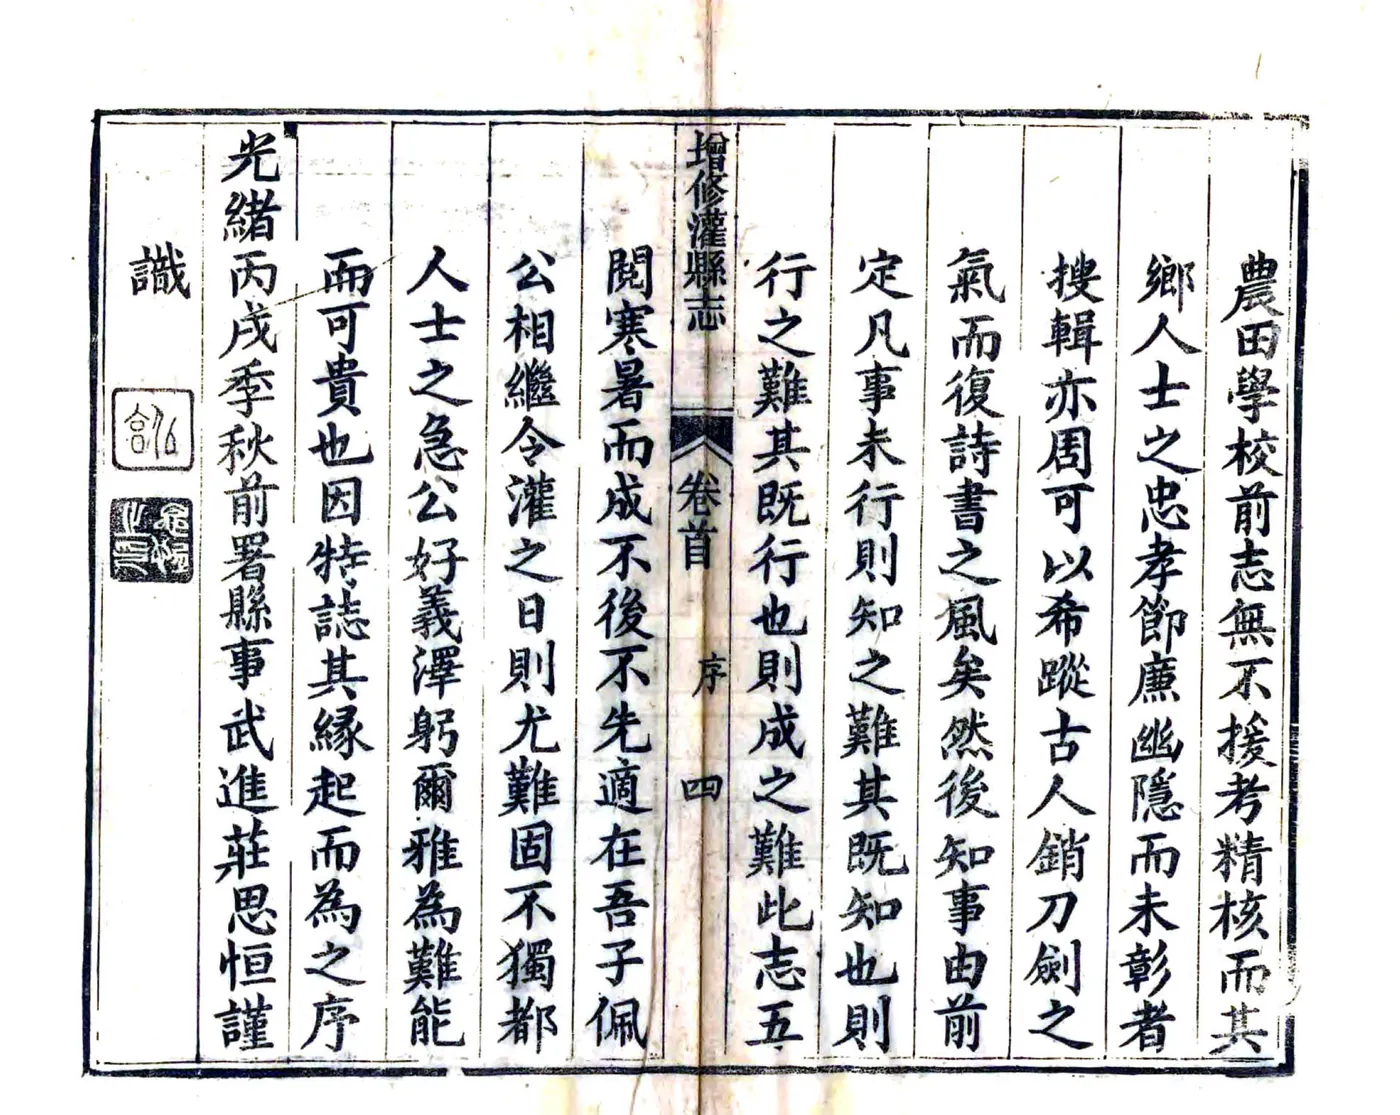 農田學校前志無不援考精核而其
鄉人士之忠孝節廉幽隱而未彰者
搜輯亦周可以希蹤古人銷刀劍之
氣而復詩書之風矣然後知事由前
定凡事未行則知之難其既知也則
行之難其既行也則成之難此志五
增修灌縣志
卷首
序
四
閱寒暑而成不後不先適在吾子佩
公相繼令灌之日則尤難固不獨都
人士之急公好義澤躬爾雅為難能
而可貴也因特誌其緣起而為之序
光緒丙戌季秋前署縣事武進莊思恒謹
識